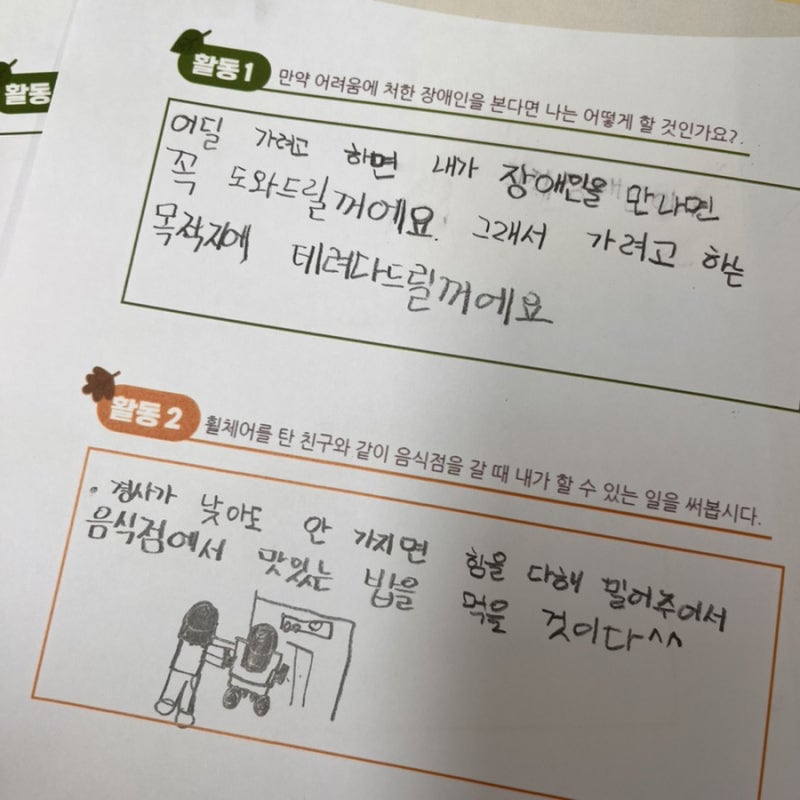 활동
활동 1 만약 어려움에 처한 장애인을 본다면 나는 어떻게 할 것인가요?
어딜 가려고 하면 내가 장애인을 만나면
꼭 도와드릴꺼에요. 그래서 가려고 하는
목적지에 테려다드릴꺼에요
활동 2 휠체어를 탄 친구와 같이 음식점을 갈 때 내가 할 수 있는 일을 써봅시다.
· 경사가 낮아도 안 가지면 힘을 다해 밀어주어서
음식점에서 맛있는 밥을 먹을 것이다^^